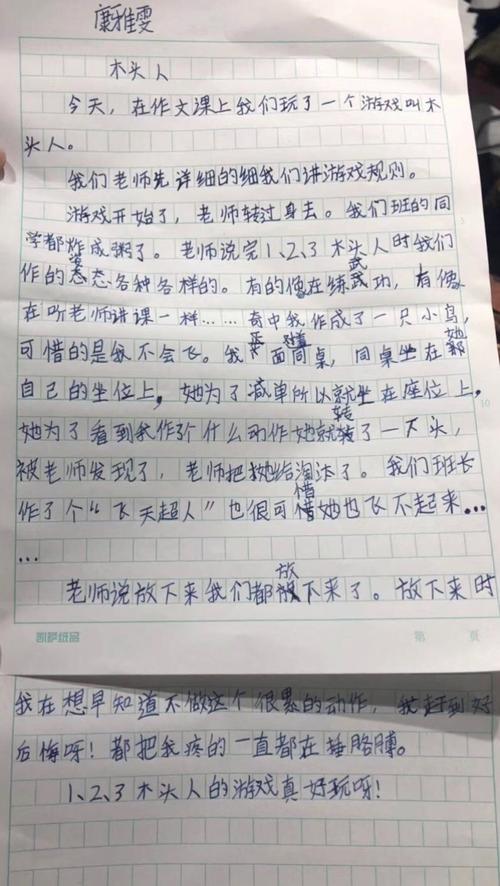 康雅雯
木头人
今天，在作文课上我们玩了一个游戏叫木
头人。
我们老师先详细的细我们讲游戏规则。
游戏开始了，老师转过身去。我们班的同
学都炸成粥了。老师说完1、2、3木头人时我们
作的姿态各种各样的。有的像在练武功，有像
在听老师讲课一样……奇中我作成了一只小鸟，
可惜的是我不会飞。我面同桌，同桌坐在她
自己的坐位上，她为了减单所以就坐在座位上，
她为了看到我作了个什么动作她就转了一下头，
被老师发现了，老师把她给淘汰了。我们班长
作了个“飞天超人”也很可惜她也飞不起来…
…
老师说放下来我们都放下来了。放下来时
凯萨纸品
第 页
我在想早知道不做这个很累的动作，我赶到好
后悔呀！都把我疼的一直都在捶胳膊。
1、2、3木头人的游戏真好玩呀！